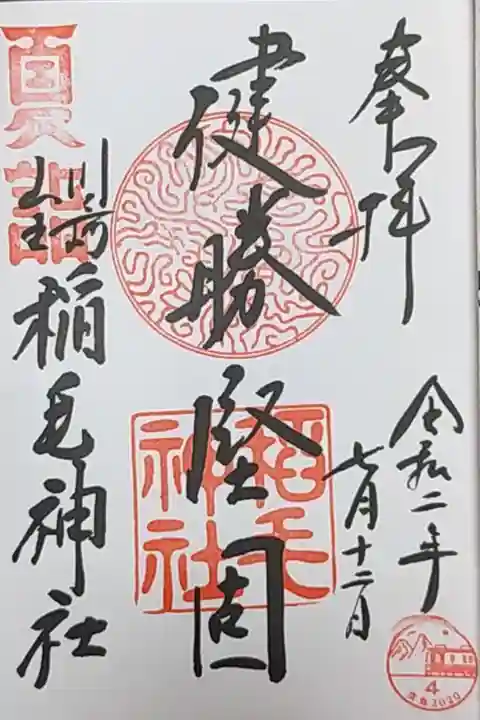 奉拝
令和二年
七月十二日
健勝堅固
稲毛神社
川崎
山王
稲毛神社
夏詣
4
2020